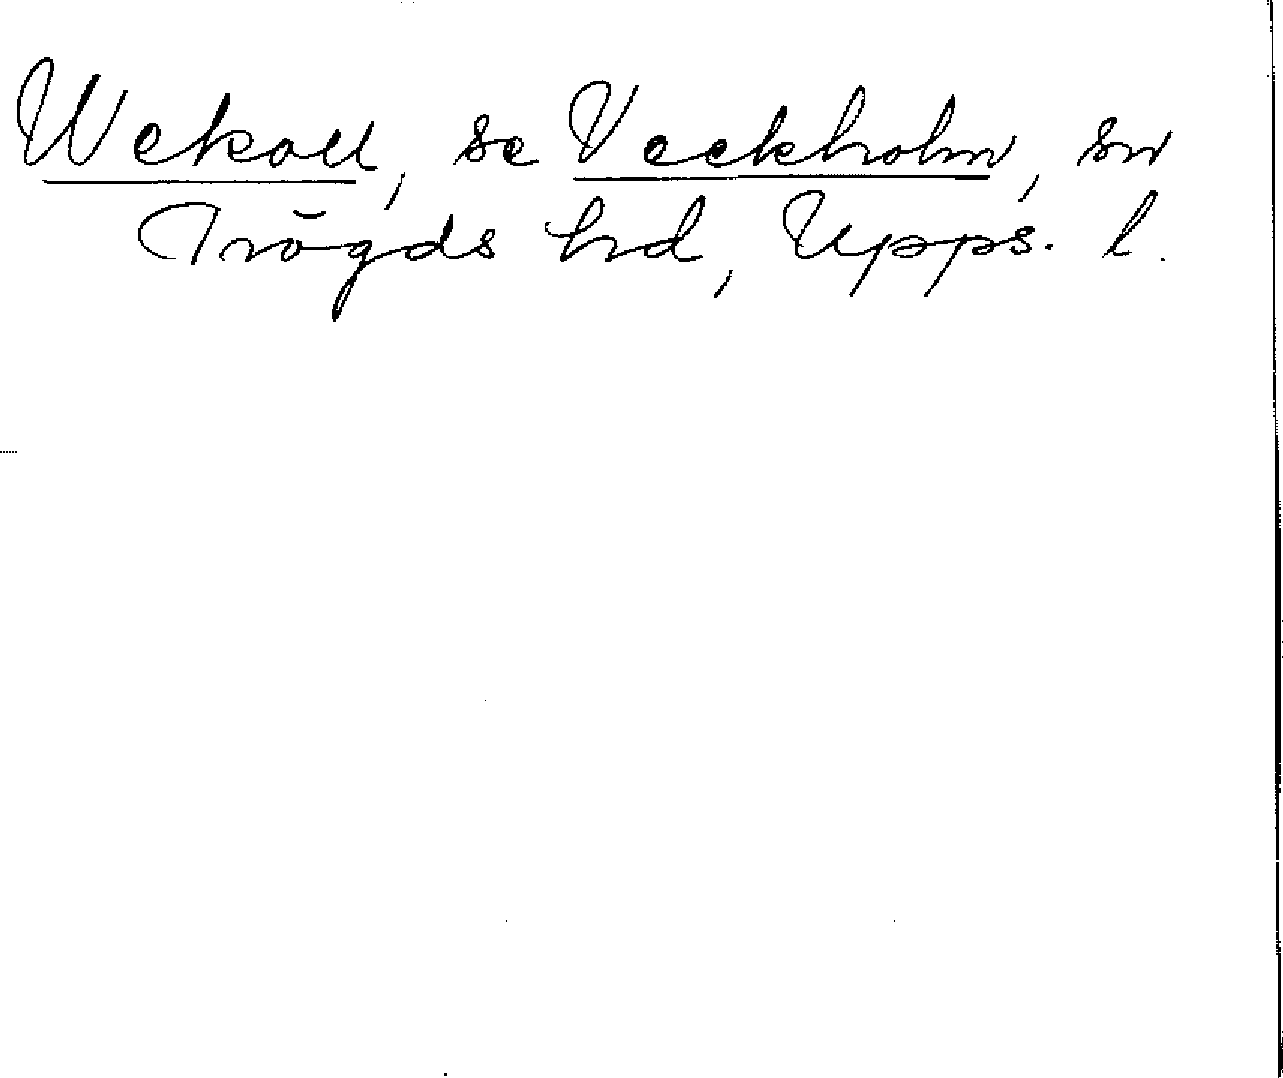 Wekou, se Veckholm, sn
Trögds hd, Upps. l.